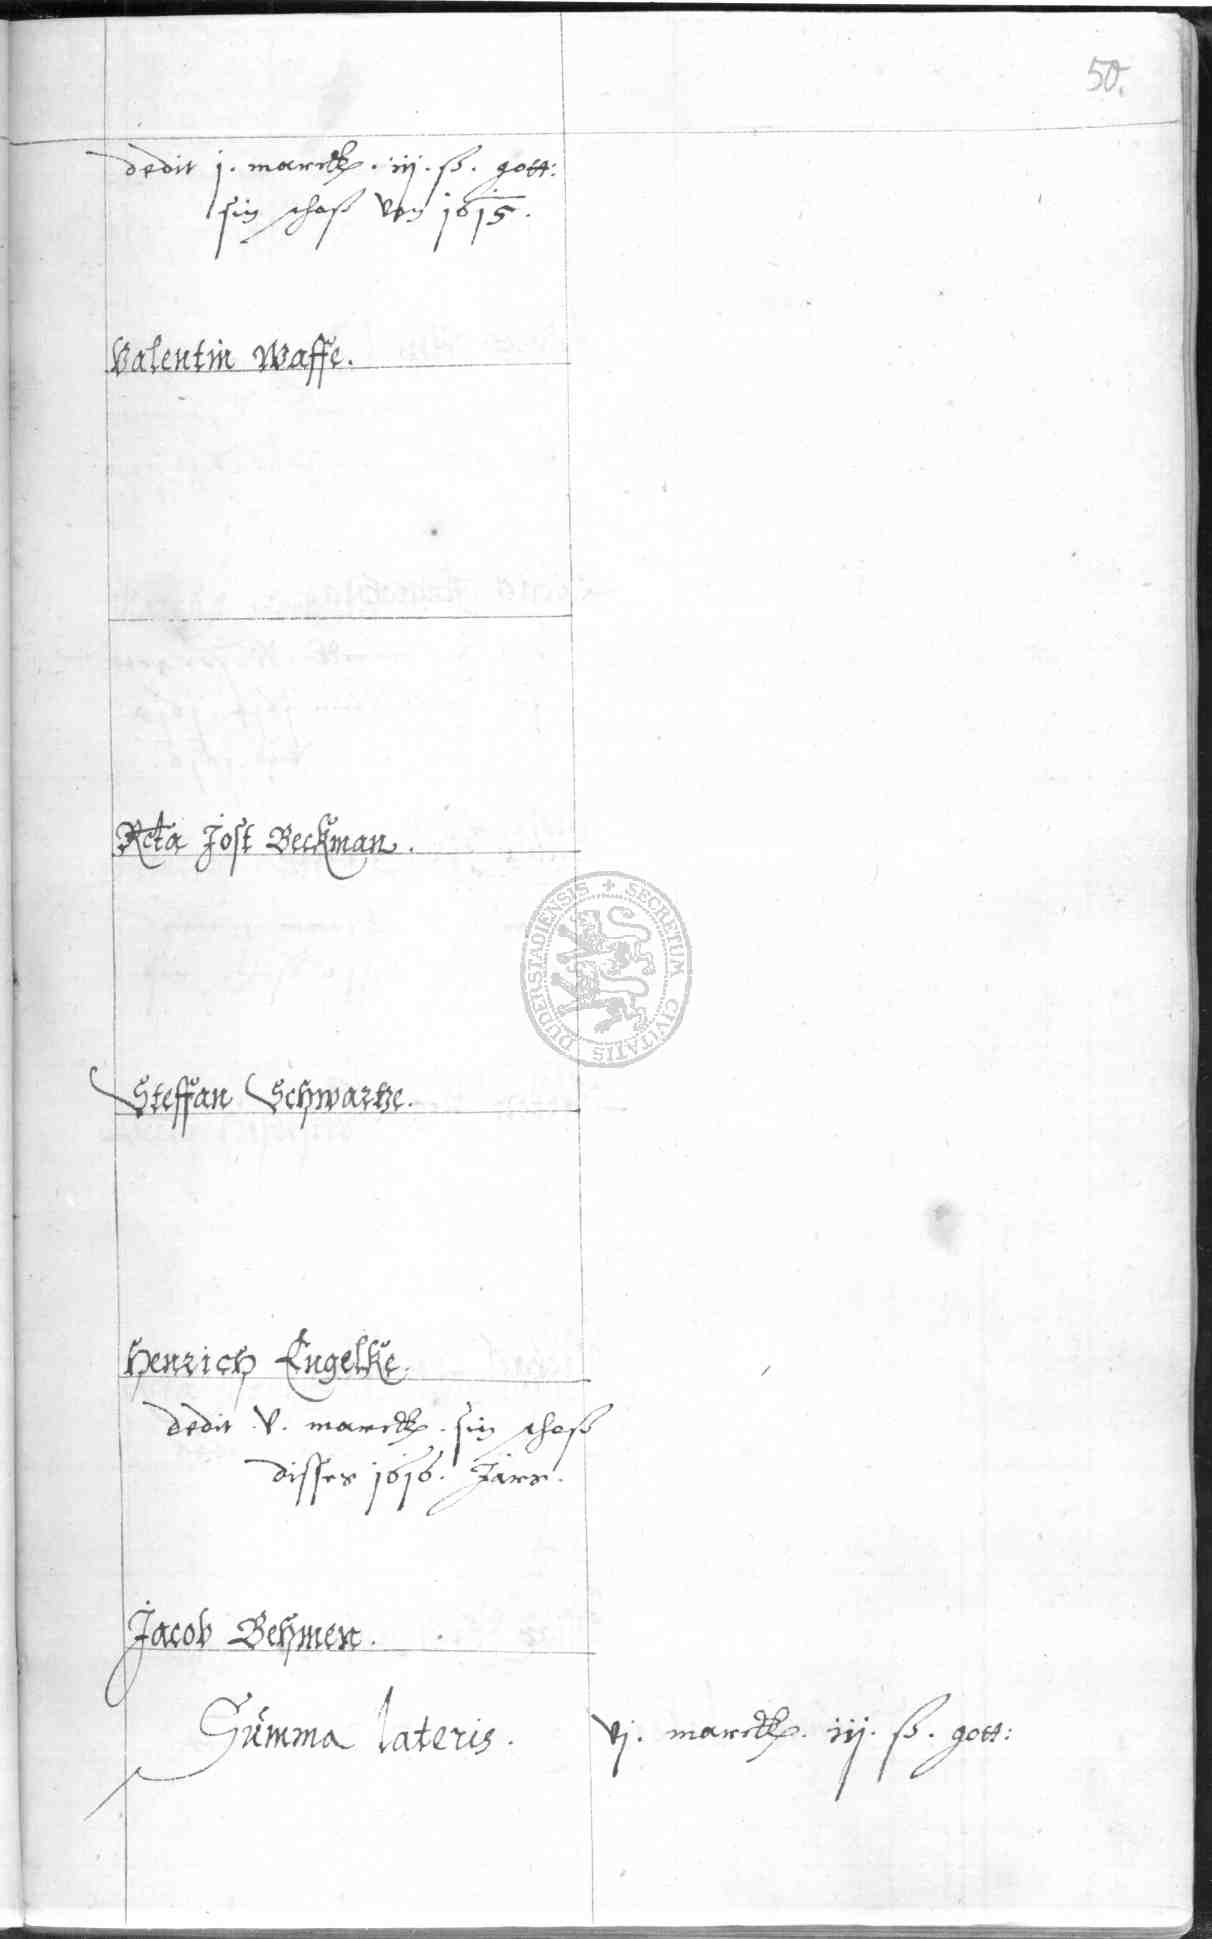 50.
dedit j. marck. iij. ß. gott:
sin schoß von 1615.
Valentin Waffe.
Rcta Jost Beckman.
Steffan Schwartze.
Henrich Engelke.
dedit v. marck. sin schoß
disses 1616. Jars.
Jacob Behmen.
Summa lateris. vj. marck. iij. ß. gott:
SECRETUM CIVITATIS DUDERSTADIENSIS